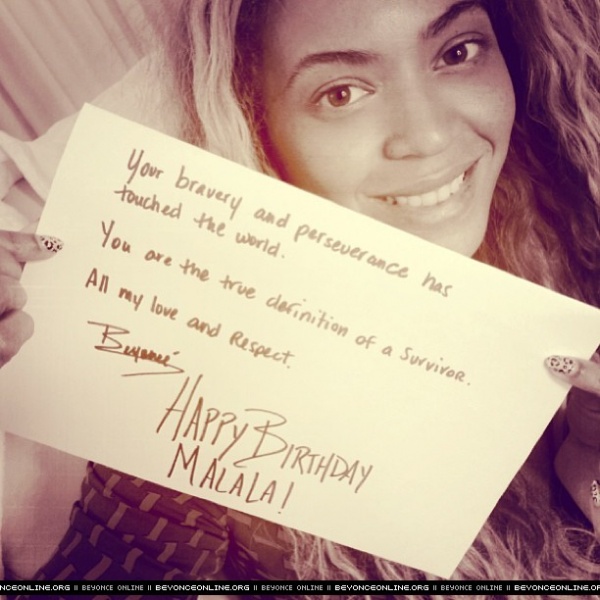 Your bravery and perseverance has
touched the world.
You are the true definition of a Survivor.
All my love and Respect.
Beyoncé
HAPPY BIRTHDAY
MALALA!
NCEONLINE.ORG || BEYONCE ONLINE || BEYONCEONLINE.ORG || BEYONCE ONLINE || BEYONCEONLINE.ORG || BEYONCE ONLINE || BEYONCEONLINE.OR